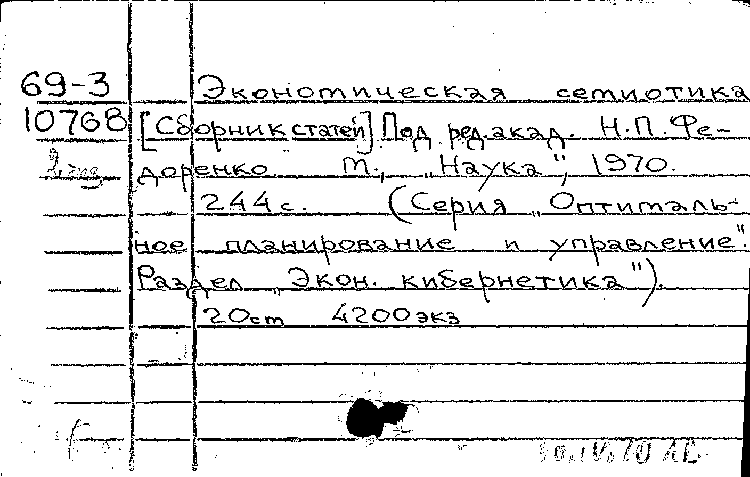 69-3 Экономическая семиотика
10768 [Сборник статей] Под ред. акад. Н.П. Фе-
доренко М., „Наука", 1970.
244с. (Серия „Оптималь-
ное планирование и управление".
Раздел „Экон. кибернетика").
20см 4200экз